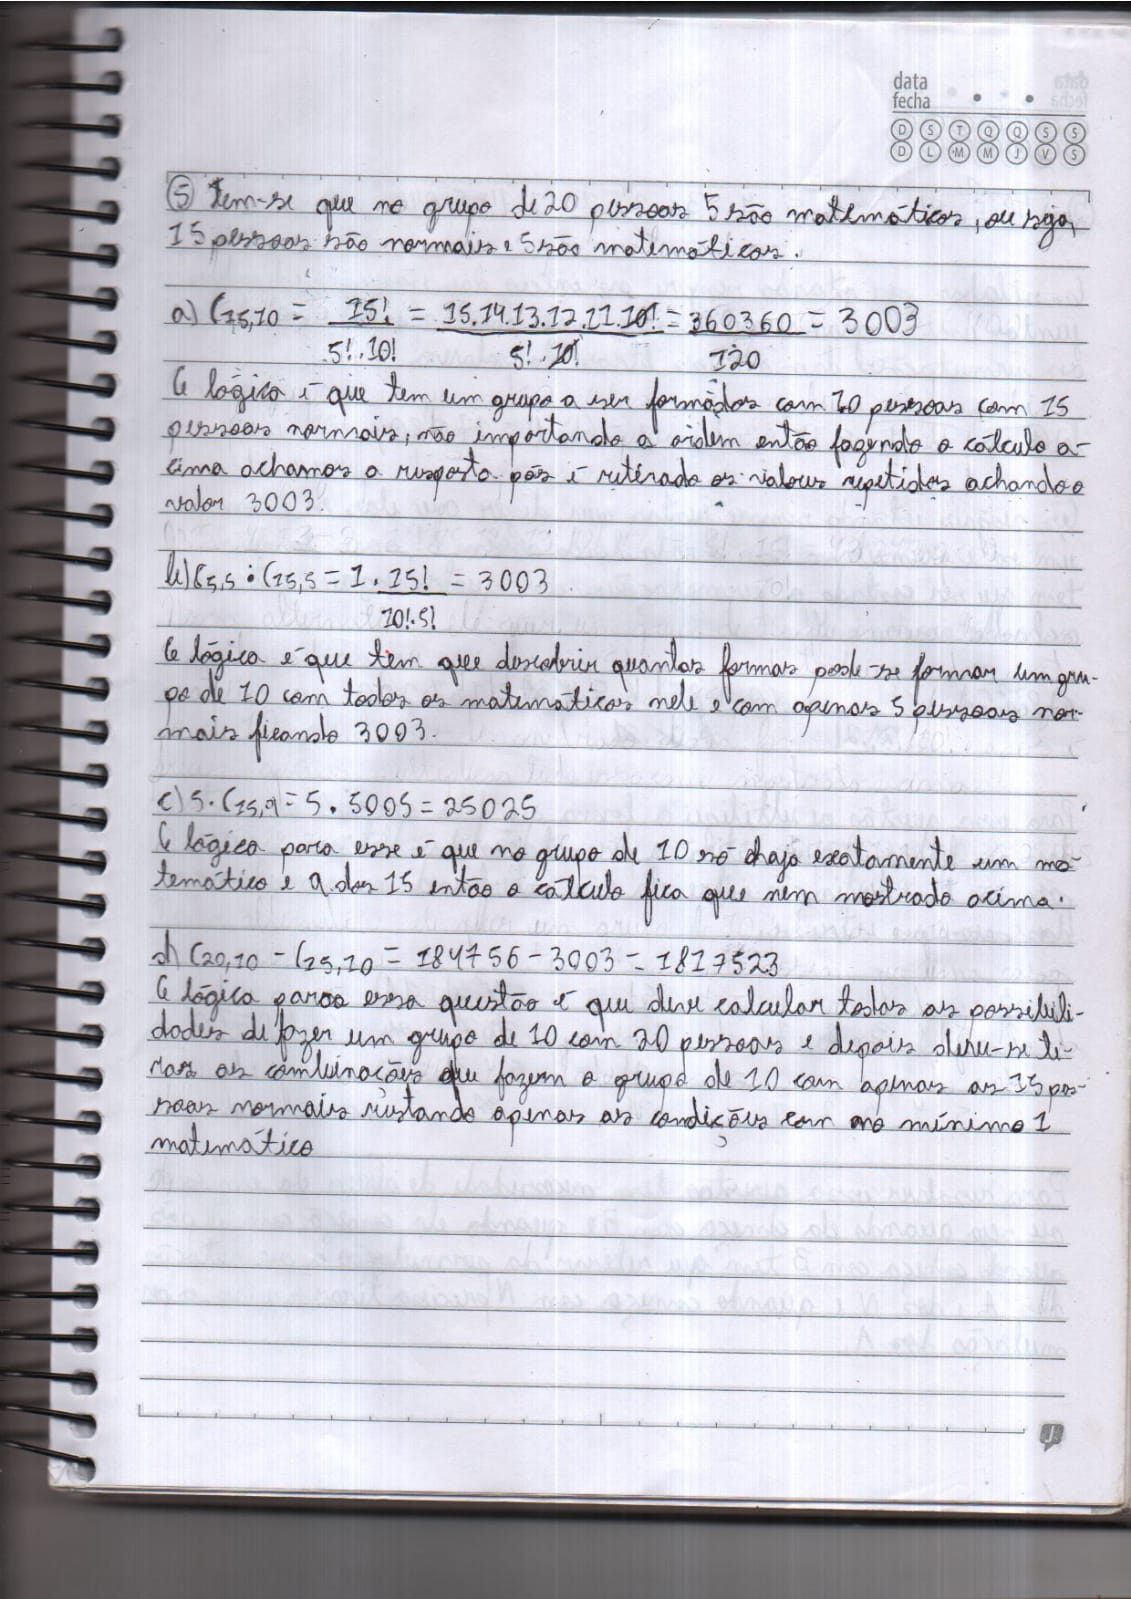 data
fecha
D S T Q Q S S
D L M M J V S
⑤ Tem-se que no grupo de 20 pessoas 5 são matemáticos, ou seja,
15 pessoas são normais e 5 são matemáticos.
a) C15,10 = 15! / 5!.10! = 15.14.13.12.11.10! / 5!.10! = 360360 / 120 = 3003
A lógica é que tem um grupo a ser formados com 10 pessoas com 15
pessoas normais, não importando a ordem então fazendo o cálculo a-
cima achamos a resposta pos é retirado os valores repetidos achando o
valor 3003.
b) C5,5 . C15,5 = 1 . 15! / 10!.5! = 3003
A lógica é que tem que descobrir quantas formas pode-se formar um gru-
po de 10 com todos os matemáticos nele e com apenas 5 pessoas nor-
mais ficando 3003.
c) 5 . C15,9 = 5 . 5005 = 25025
A lógica para esse é que no grupo de 10 só haja exatamente um ma-
temático e 9 dos 15 então o cálculo fica que nem mostrado acima.
d) C20,10 - C15,10 = 184756 - 3003 = 1817523
A lógica para essa questão é que deve calcular todas as possibili-
dades de fazer um grupo de 10 com 20 pessoas e depois deve-se ti-
rar as combinações que fazem o grupo de 10 com apenas as 15 pes-
soas normais restando apenas as condições com no mínimo 1
matemático